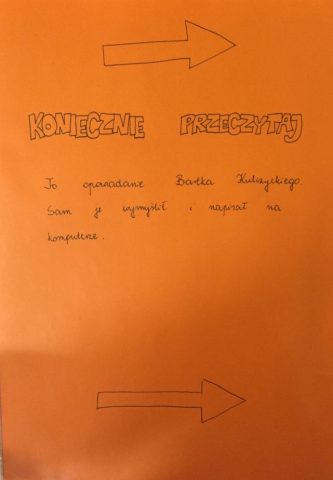 KONIECZNIE PRZECZYTAJ
To opowiadanie Bartka Kulszyckiego.
Sam je wymyślił i napisał na
komputerze.